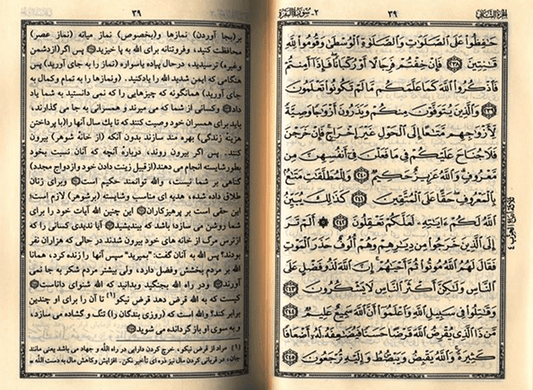 الجزء الثاني ٣٩ ٢- سورة البقرة
حَٰفِظُوا۟ عَلَى ٱلصَّلَوَٰتِ وَٱلصَّلَوٰةِ ٱلْوُسْطَىٰ وَقُومُوا۟ لِلَّهِ
قَٰنِتِينَ ٢٣٨ فَإِنْ خِفْتُمْ فَرِجَالًا أَوْ رُكْبَانًا فَإِذَآ أَمِنتُمْ
فَٱذْكُرُوا۟ ٱللَّهَ كَمَا عَلَّمَكُم مَّا لَمْ تَكُونُوا۟ تَعْلَمُونَ
٢٣٩ وَٱلَّذِينَ يُتَوَفَّوْنَ مِنكُمْ وَيَذَرُونَ أَزْوَٰجًا وَصِيَّةً
لِّأَزْوَٰجِهِم مَّتَٰعًا إِلَى ٱلْحَوْلِ غَيْرَ إِخْرَاجٍ فَإِنْ خَرَجْنَ
فَلَا جُنَاحَ عَلَيْكُمْ فِى مَا فَعَلْنَ فِىٓ أَنفُسِهِنَّ مِن
مَّعْرُوفٍ وَٱللَّهُ عَزِيزٌ حَكِيمٌ ٢٤٠ وَلِلْمُطَلَّقَٰتِ مَتَٰعٌۢ
بِٱلْمَعْرُوفِ حَقًّا عَلَى ٱلْمُتَّقِينَ ٢٤١ كَذَٰلِكَ يُبَيِّنُ
ٱللَّهُ لَكُمْ ءَايَٰتِهِۦ لَعَلَّكُمْ تَعْقِلُونَ ٢٤٢ أَلَمْ تَرَ
إِلَى ٱلَّذِينَ خَرَجُوا۟ مِن دِيَٰرِهِمْ وَهُمْ أُلُوفٌ حَذَرَ ٱلْمَوْتِ
فَقَالَ لَهُمُ ٱللَّهُ مُوتُوا۟ ثُمَّ أَحْيَٰهُمْ إِنَّ ٱللَّهَ لَذُو فَضْلٍ عَلَى
ٱلنَّاسِ وَلَٰكِنَّ أَكْثَرَ ٱلنَّاسِ لَا يَشْكُرُونَ ٢٤٣
وَقَٰتِلُوا۟ فِى سَبِيلِ ٱللَّهِ وَٱعْلَمُوٓا۟ أَنَّ ٱللَّهَ سَمِيعٌ عَلِيمٌ ٢٤٤
مَّن ذَا ٱلَّذِى يُقْرِضُ ٱللَّهَ قَرْضًا حَسَنًا فَيُضَٰعِفَهُۥ لَهُۥٓ أَضْعَافًا
كَثِيرَةً وَٱللَّهُ يَقْبِضُ وَيَبْصُۜطُ وَإِلَيْهِ تُرْجَعُونَ ٢٤٥
٣٩ ٢- سورة البقرة
بر(بجا آوردن) نمازها و(بخصوص) نماز میانه (نماز عصر)
محافظت کنید، و فروتنانه برای الله به پا خیزید پس اگر(ازدشمن
وغیره) ترسیدید، درحال پیاده یاسواره (نماز را به جای آورید) پس
هنگامی که ایمن شدید الله را یادکنید. (ونمازها را به تمام وکمال به
جای آورید) همانگونه که چیزهایی را که نمی دانستید به شما یاد
داد وکسانی از شما که می میرند و همسرانی به جا می گذارند،
باید برای همسران خود وصیت کنند که تا یک سال آنها را(با پرداختن
هزینهٔ زندگی) بهره مند سازند بدون آنکه (از خانهٔ شوهر) بیرون
کنند. پس اگر بیرون روند، دربارهٔ آنچه که آنان نسبت بخود
بطور شایسته انجام می دهند(از قبیل زینت دادن خود وازدواج مجدد)
گناهی بر شما نیست، والله توانمند حکیم است وبرای زنان
طلاق داده شده، هدیه ای مناسب وشایسته (برشوهر) لازم است؛
این حقی است بر پرهیزکاران این چنین الله آیات خود را برای
شما روشن می سازد؛ باشد که بیندیشید آیا ندیدی کسانی را که
از ترس مرگ از خانه های خود بیرون شدند در حالی که هزاران نفر
بودند؟ پس الله به آنان گفت: "بمیرید" سپس آنها را زنده کرد، همانا
الله بر مردم بخشش وفضل دارد، ولی بیشتر مردم شکر به جا نمی
آورند ودر راه الله بجنگید وبدانید که الله شنوای داناست
کیست که به الله قرض دهد قرض نیکو(١) تا آن را برای او چندین
برابر کند؟ والله است که (روزی بندگان را) تنگ و گشاده می سازد،
و به سوی او باز گردانده می شوید
(١) مراد از قرض نیکو، خرج کردن دارایی در راه الله و جهاد می باشد یعنی مانند
جان، در قربانی کردن مال نیز ذره ای تأخیر نکن. افزایش وکاهش مال به دست الله